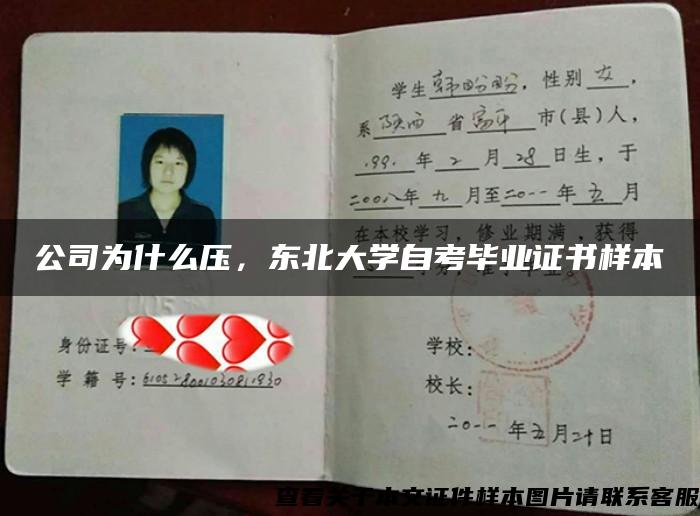 学生韩盼盼，性别女，
系陕西省富平市(县)人，
1991年2月28日生，于
二00八年九月至二0一一年五月
在本校学习，修业期满，获得
公司为什么压，东北大学自考毕业证书样本
身份证号：
学籍号：
学校：
校长：
二0一一年五月二十日
查看关于本文证件样本图片请联系客服